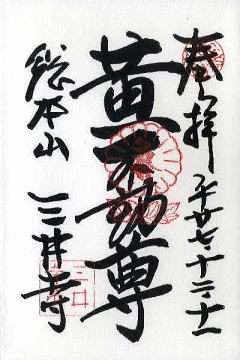 奉拝 平廿七・十二・十一
黄不動尊
総本山 三井寺